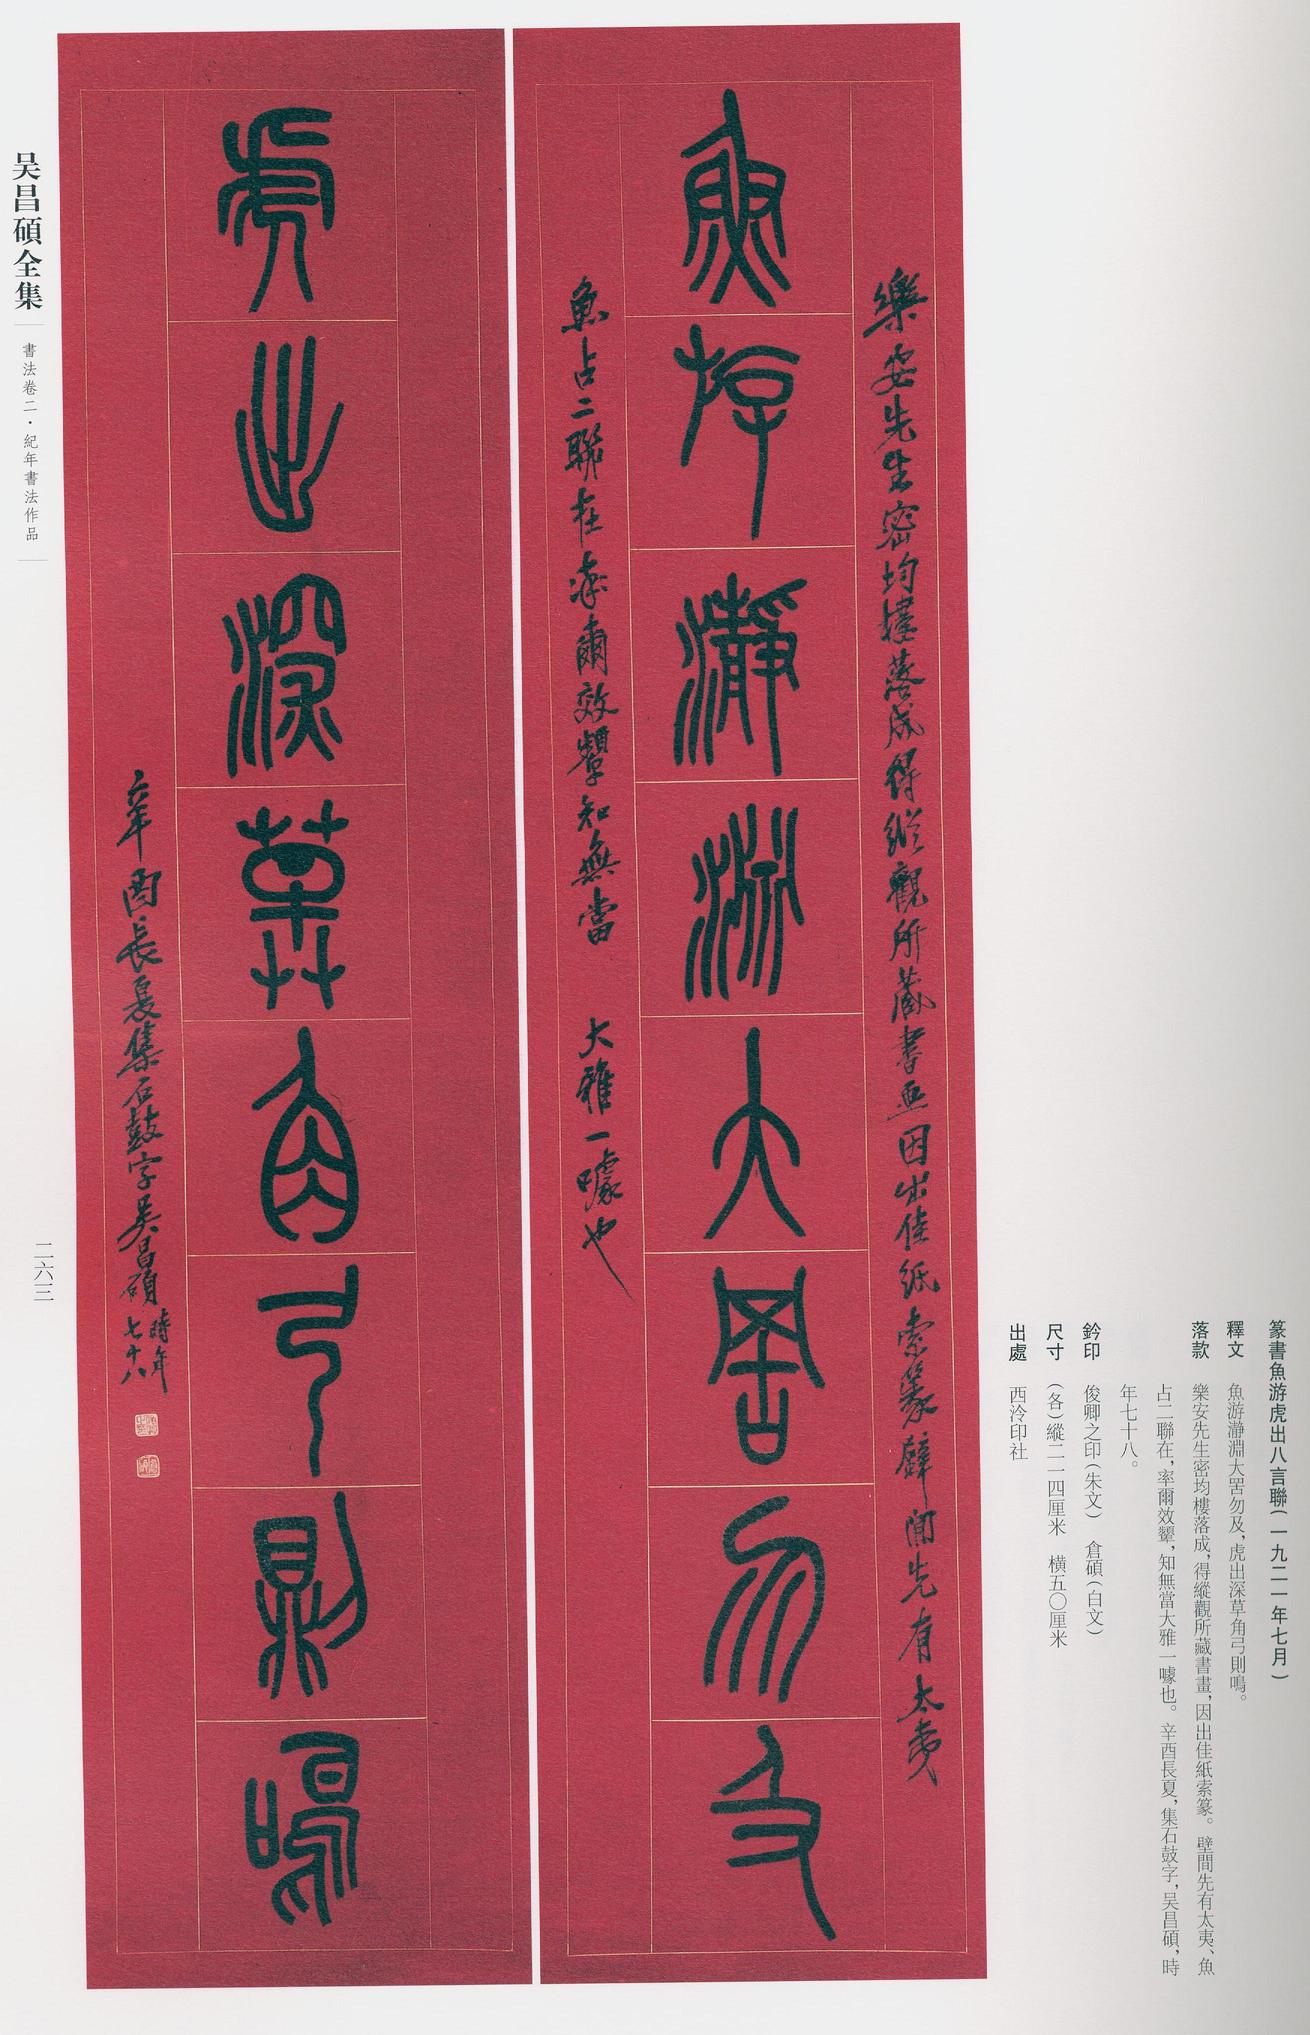 魚游瀞淵大罟勿及
樂安先生密均樓落成得縱觀所藏書畫因出佳紙索篆壁間先有太夷
魚占二聯在率爾效顰知無當 大雅一噱也
虎出深草角弓則鳴
辛酉長夏集石鼓字吳昌碩時年七十八
篆書魚游虎出八言聯(一九二一年七月)
釋文 魚游瀞淵大罟勿及,虎出深草角弓則鳴。
落款 樂安先生密均樓落成,得縱觀所藏書畫,因出佳紙索篆。壁間先有太夷、魚
占二聯在,率爾效顰,知無當大雅一噱也。辛酉長夏,集石鼓字,吳昌碩,時
年七十八。
鈐印 俊卿之印(朱文) 倉碩(白文)
尺寸 (各)縱二一四厘米 橫五〇厘米
出處 西泠印社
吴昌碩全集
書法卷二·紀年書法作品
二六三